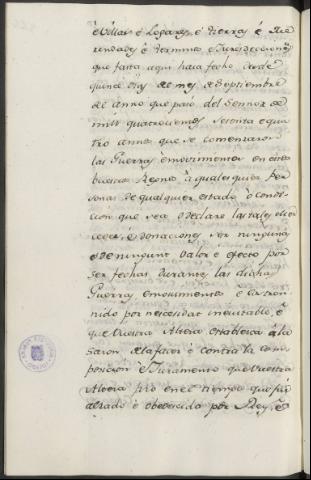 é Villas é Logares, é tierras é He
rendades é terminos é Jurisdecciones
que fasta aqui haia fecho desde
quince dias de mes de Septiembre
de anno que pasó del Sennor de
mill quatrocientos sesenta é qua
tro annos que se comenzaron
las Guerras é movimientos en estos
buestros Regnos á qualesquier Per
sonas de qualquier estado ó condi
ción que sea é declare las tales mer
cedes é donaciones ser ningunas
é de ningunt valor é efecto por
ser fechas durante las dichas
Guerras é movimientos é
por necesidat inevitable, é
que Vuestra Alteza establezca á la
sazon de la facer é contra la com
posicion é Juramento que Vuestra
Alteza fizo en el tiempo que fué
alzado é obedecido por Rey, é